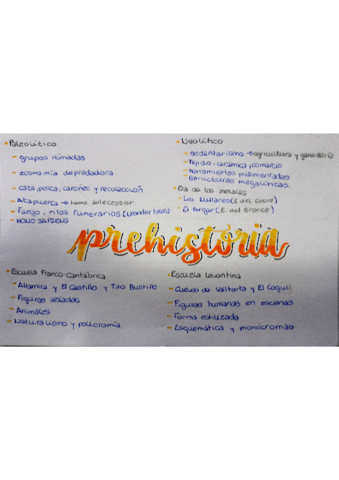 • Paleolítico
- grupos nómadas
- economía depredadora
- caza, pesca, carroñeo y recolección
- Atapuerca → homo antecessor
- Fuego, ritos funerarios (Neandertales)
- HOMO SAPIENS
• Neolítico
- sedentarismo → agricultura y ganadería
- Tejido, cerámica, comercio
- Herramientas pulimentadas
- Estructuras megalíticas.
• Era de los metales
- Los Millares (E del cobre)
- El Argar (E. del Bronce)
prehistoria
• Escuela Franco-cantábrica
- Altamira y El Castillo y Tito Bustillo
- Figuras aisladas
- Animales
- Naturalismo y policromía
• Escuela Levantina
- Cuevas de Valltorta y El Cogul
- Figuras humanas en escenas
- Forma estilizada
- Esquemática y monocromas